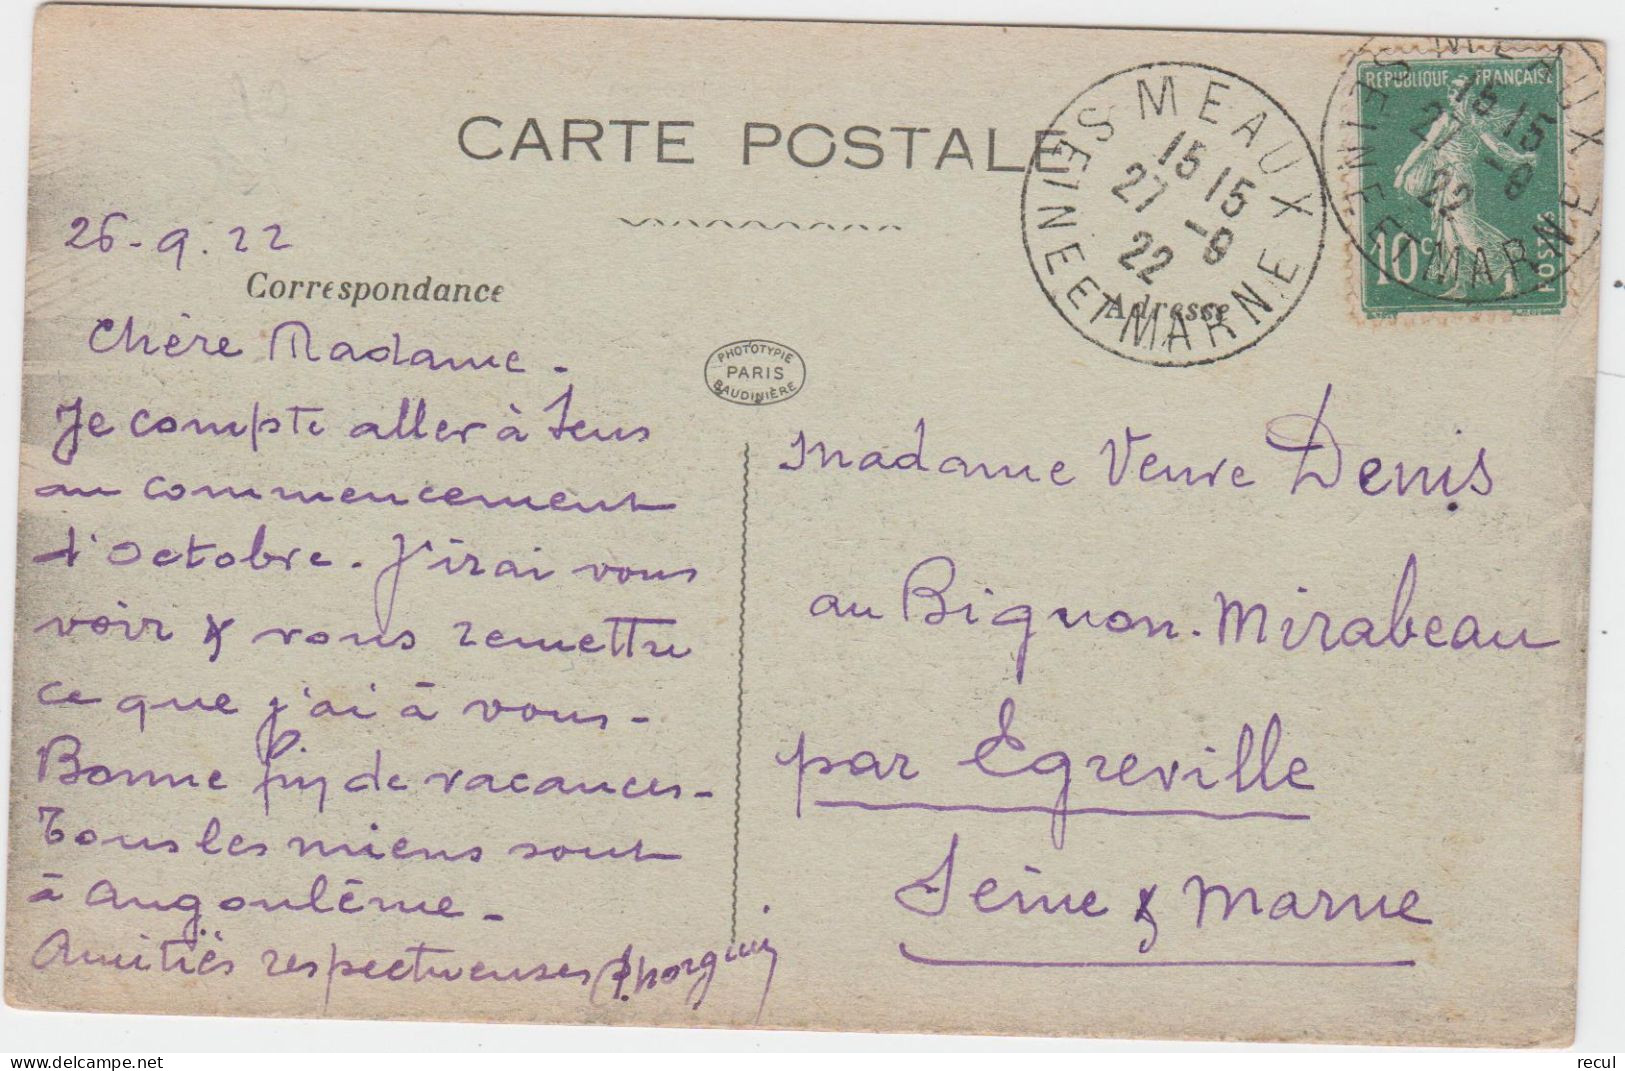 CARTE POSTALE
26-9.22
Correspondance
Chère Madame -
Je compte aller à Sens
au commencement
d'Octobre. J'irai vous
voir & vous remettre
ce que j'ai à vous -
Bonne fin de vacances -
Tous les miens sont
à Angoulême -
Amitiés respectueuses
PHOTOTYPIE
PARIS
BAUDINIÈRE
MEAUX
15 15
27 -9
22
SEINE ET MARNE
REPUBLIQUE FRANÇAISE
10c
POSTES
MEAUX
15 15
27 -9
22
SEINE ET MARNE
Adresse
Madame Veuve Denis
au Bignon-Mirabeau
par Egreville
Seine & Marne
delcampe.net
recul